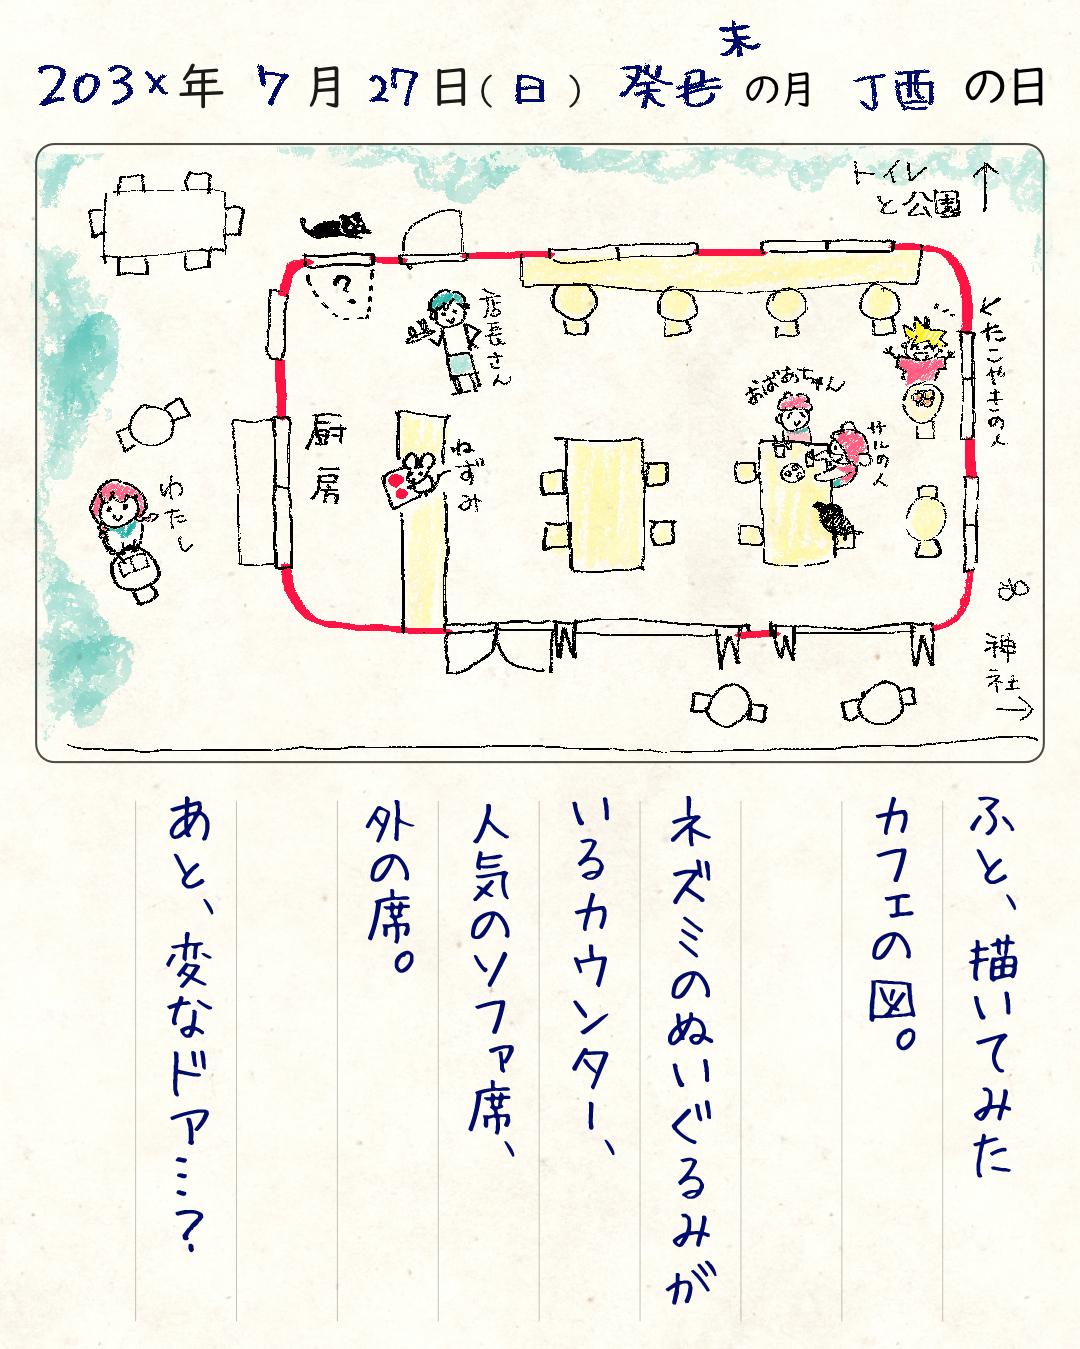 未
203x年 7月27日(日) 癸巳の月 丁酉の日
トイレ
と公園
↑
?
店長さん
←たこやきの人
おばあちゃん
サルの人
厨房
ねずみ
わたし
神社
→
ふと、描いてみた
カフェの図。
ネズミのぬいぐるみが
いるカウンター、
人気のソファ席、
外の席。
あと、変なドア…?